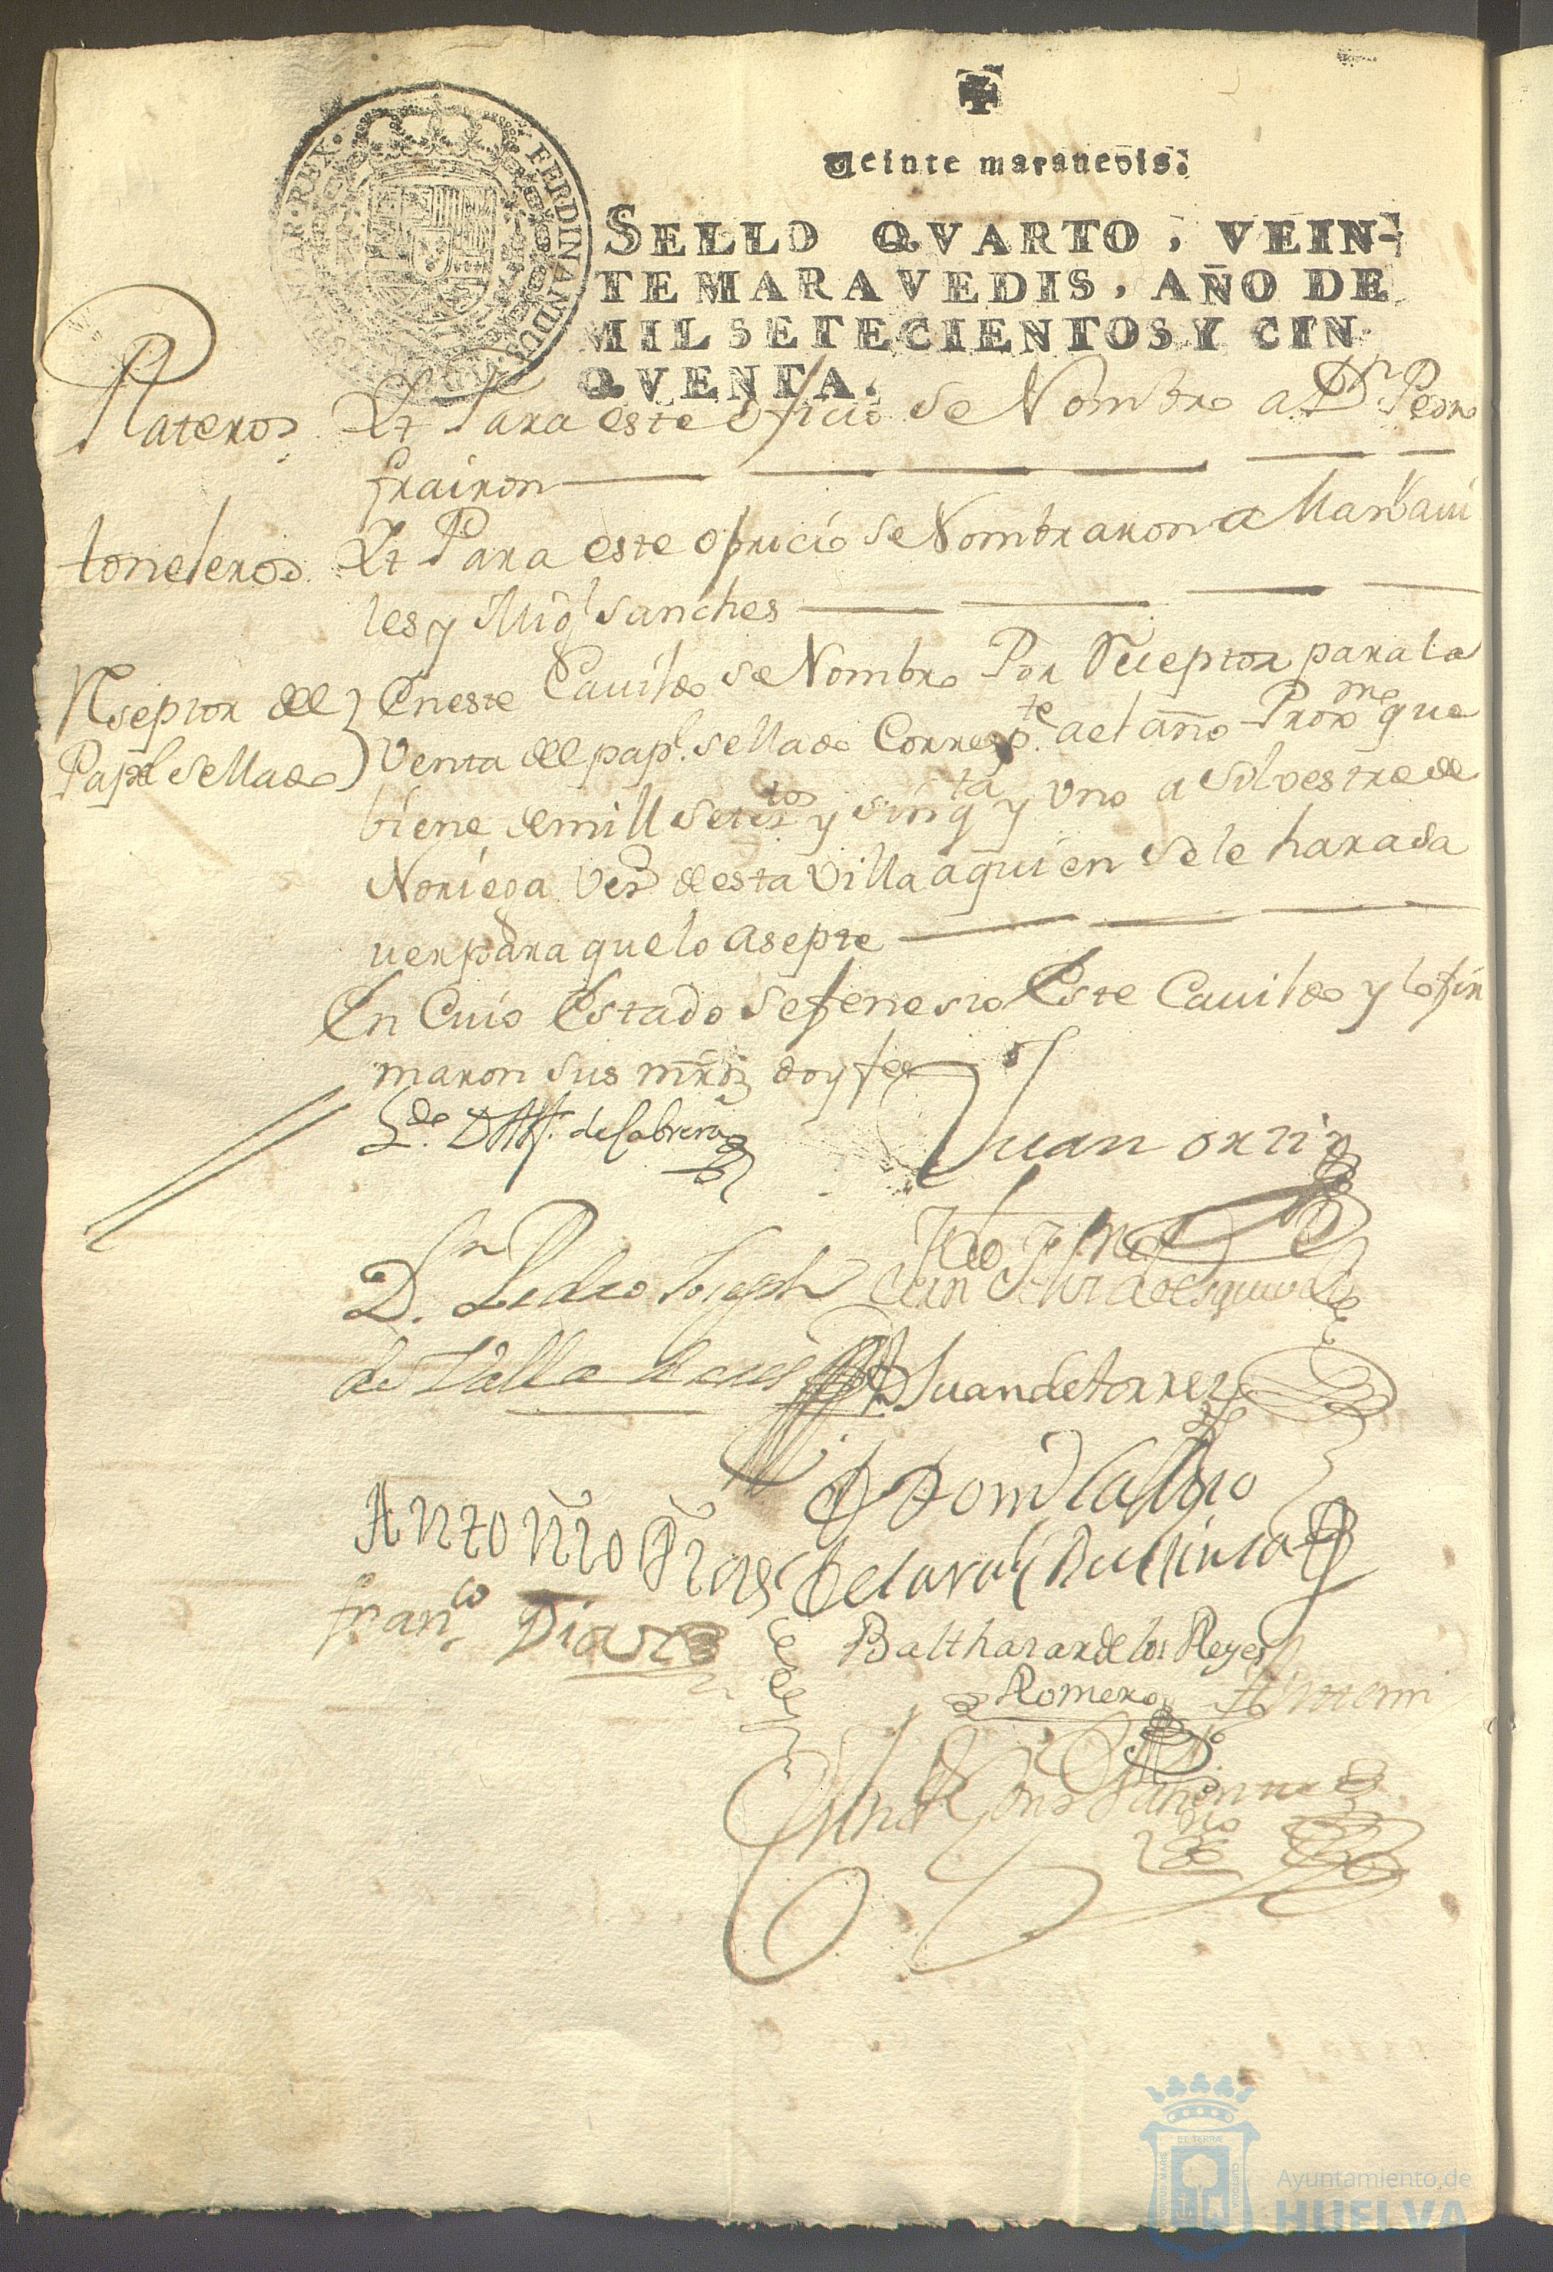 Veinte maravedis.
SELLO QVARTO, VEIN-
TE MARAVEDIS, AÑO DE
MIL SETECIENTOS Y CIN-
QVENTA.
FERDINANDUS
REX
Plateros
Yt Para este oficio se Nombro a Dn Pedro
frairon
toneleros
Yt Para este ofricio se Nombraron a Marn. aui
les y Migl sanches
Reseptor del
Papl sellado
En este Cauildo se Nombro Por Receptor para la
venta del papl. sellado Correspte. ael año Proxmo que
biene de mill setesos y sinqta y uno a Silvestre de
Noriega Veso de esta Villa a quien se le hara sa
uer para que lo asepte
En Cuio Estado se fenesio Este Cauildo y lo fir
maron sus mrds doy fee
Ldo. D Alf. de Cabrera
Juan ortiz
Dn. Pedro Joseph
de Valladares
Juan de torres
Antonio
Franco. Diaz
Balthazar de los Reyes
Romero
Ayuntamiento de
HUELVA